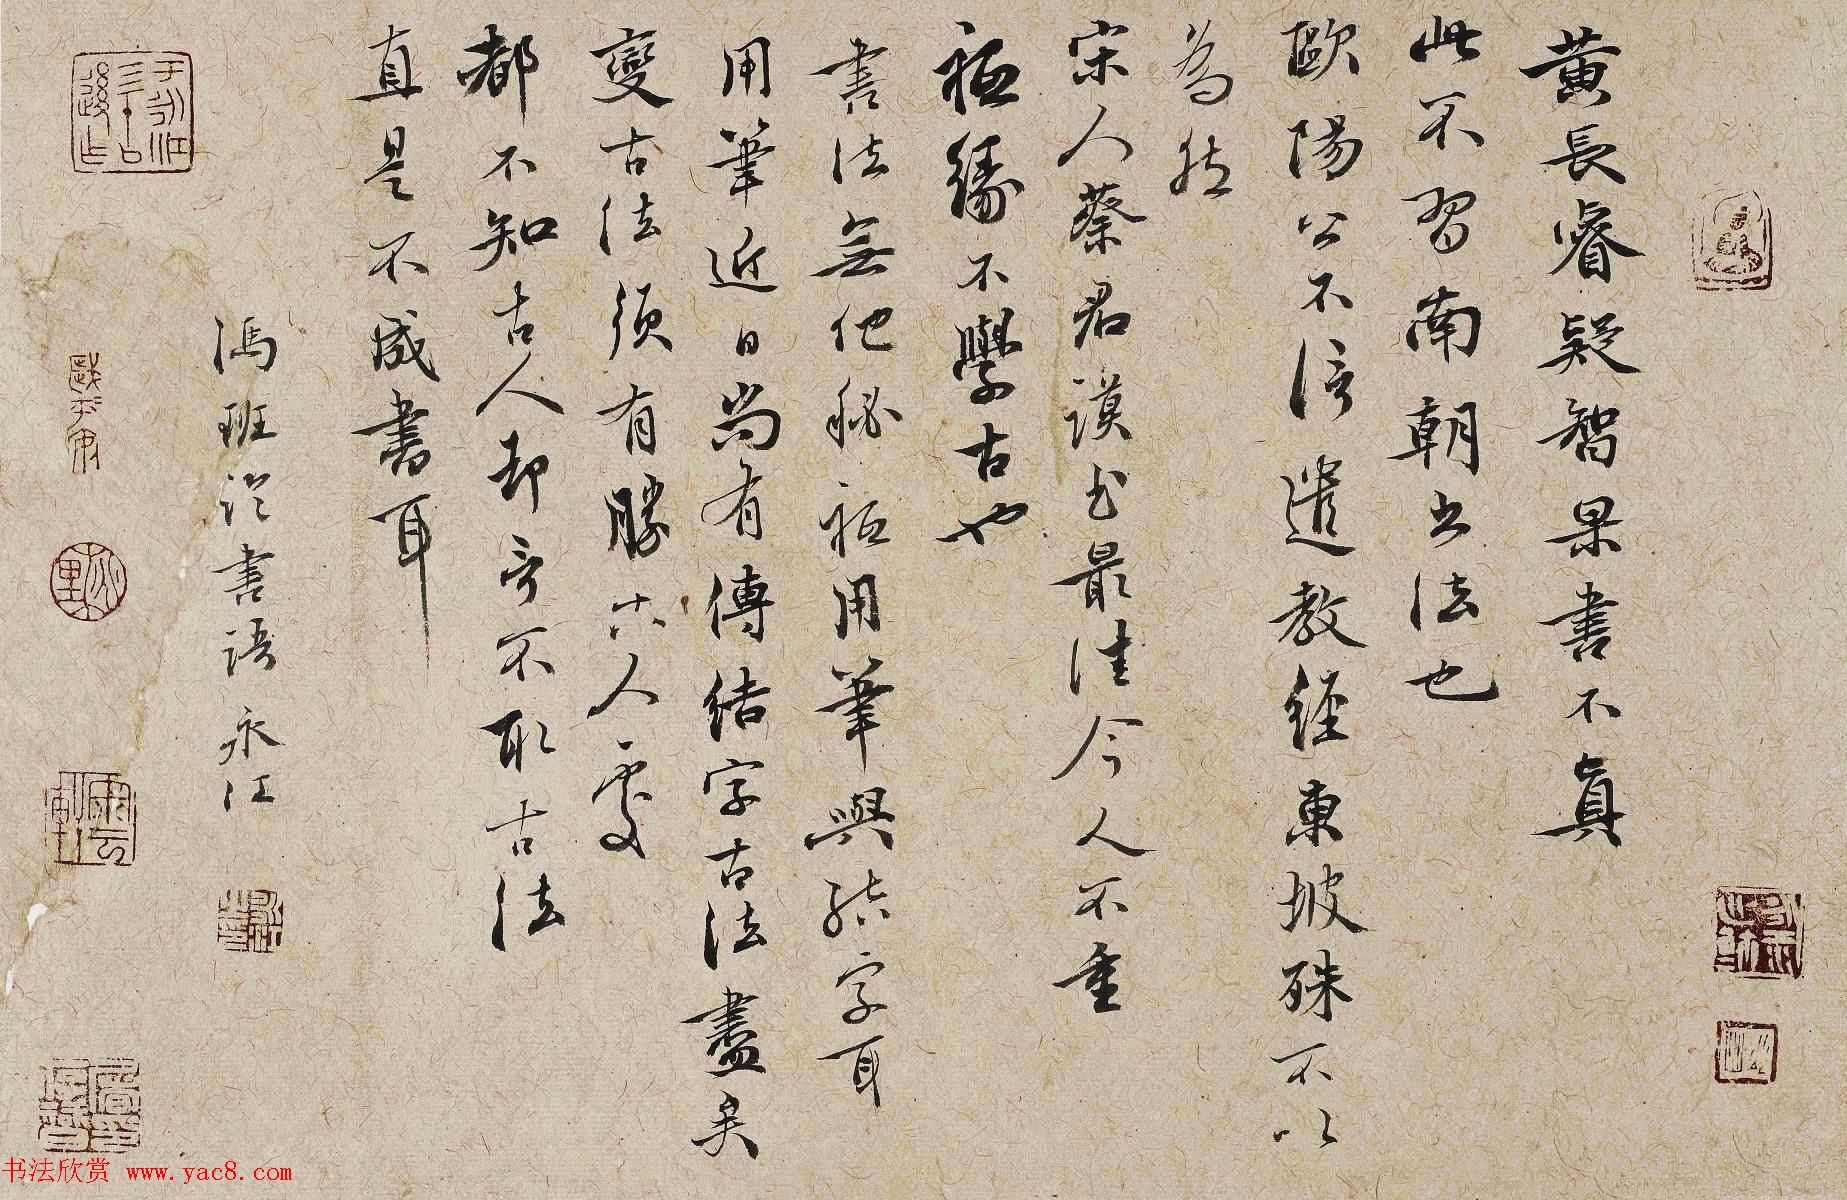 黃長睿疑智果書不真
此不習南朝书法也
歐陽公不信遺教經東坡殊不以
為然
宋人蔡君謨书最佳今人不重
祗緣不學古也
書法無他秘祗用筆與結字耳
用筆近日尚有傳結字古法盡矣
變古法須有勝古人處
都不知古人却言不取古法
直是不成書耳
馮班論書語永江
书法欣赏 www.yac8.com